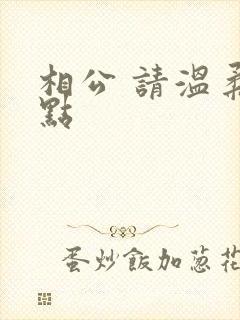 相公 請溫柔
點
蛋炒飯加蔥花